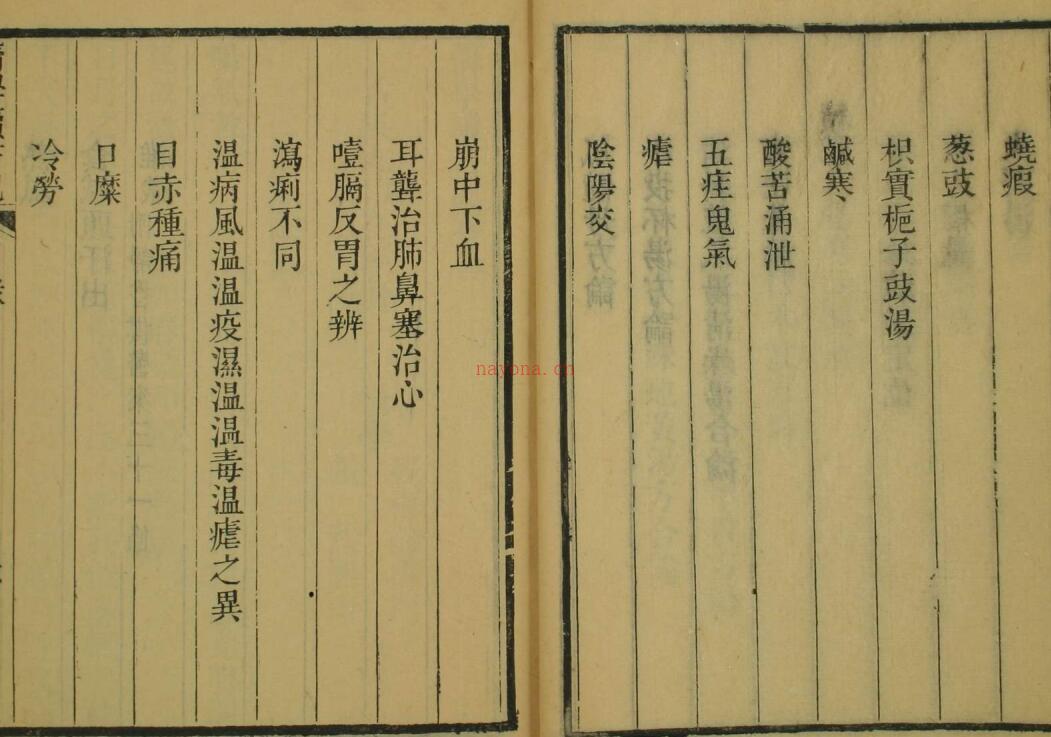 蟯瘕
葱豉
枳實梔子豉湯
鹹寒
酸苦涌泄
五疰鬼氣
瘧
陰陽交
崩中下血
耳聾治肺鼻塞治心
噎膈反胃之辨
瀉痢不同
温病風温温疫濕温温毒温瘧之異
目赤種痛
口糜
冷勞
nayona.cn